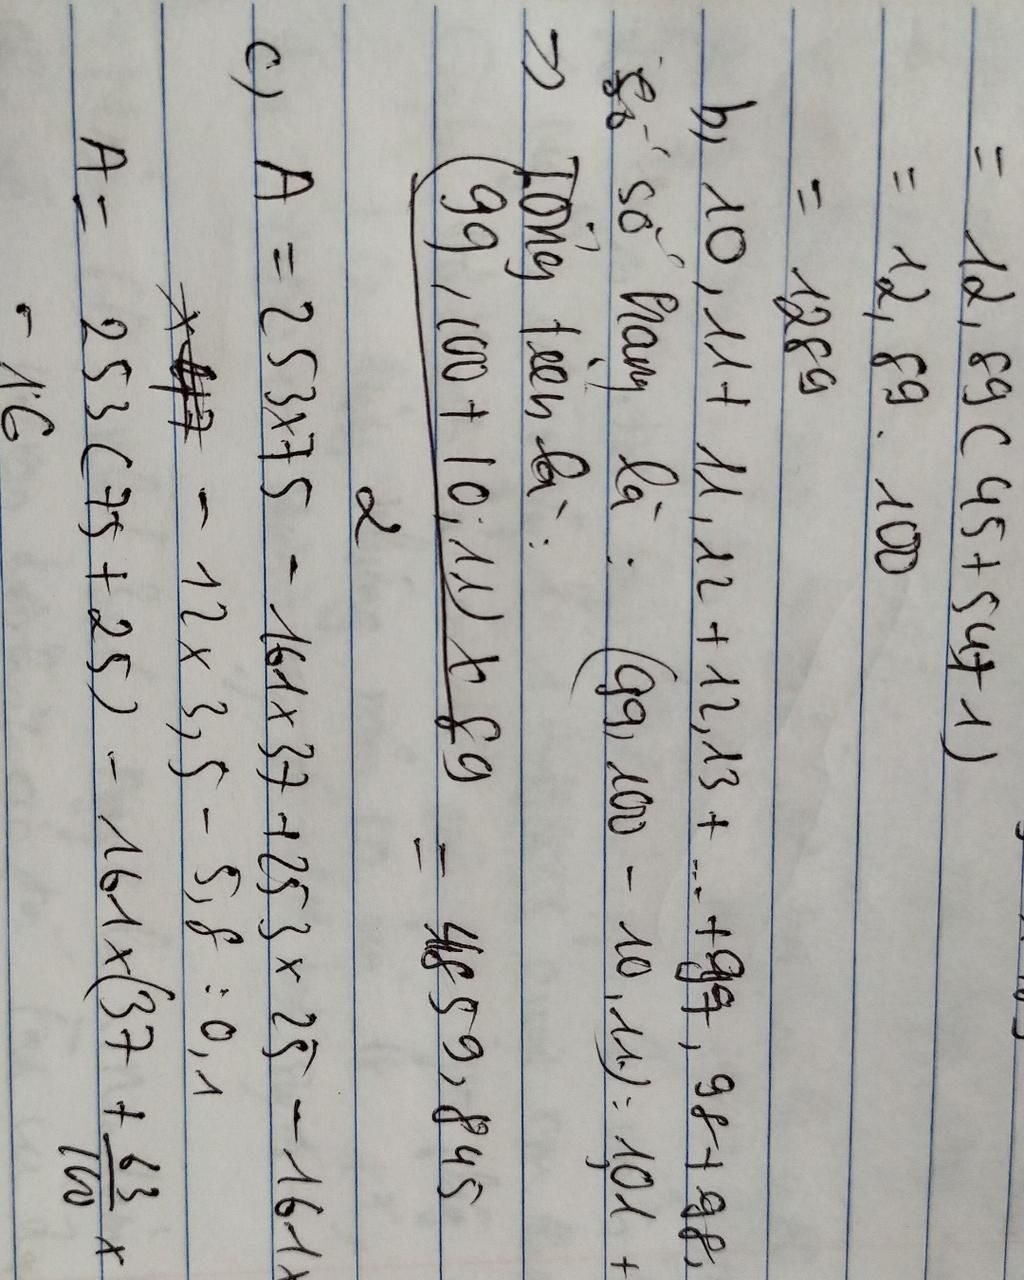 = 12,89 ( 45 + 54 + 1 )
= 12,89 . 100
= 1289
b, 10,11 + 11,12 + 12,13 + ... + 97,98 + 98,
số hạng là : (99,100 - 10,11) : 1,01 +
=> Tổng trên là :
(99,100 + 10,11) x 89
= 4859,845
2
c) A = 253x75 - 161x37 + 253x25 - 161x
- 12x3,5 - 5,8 : 0,1
A = 253 (75 + 25) - 161x(37 + 63/100 x
- 16